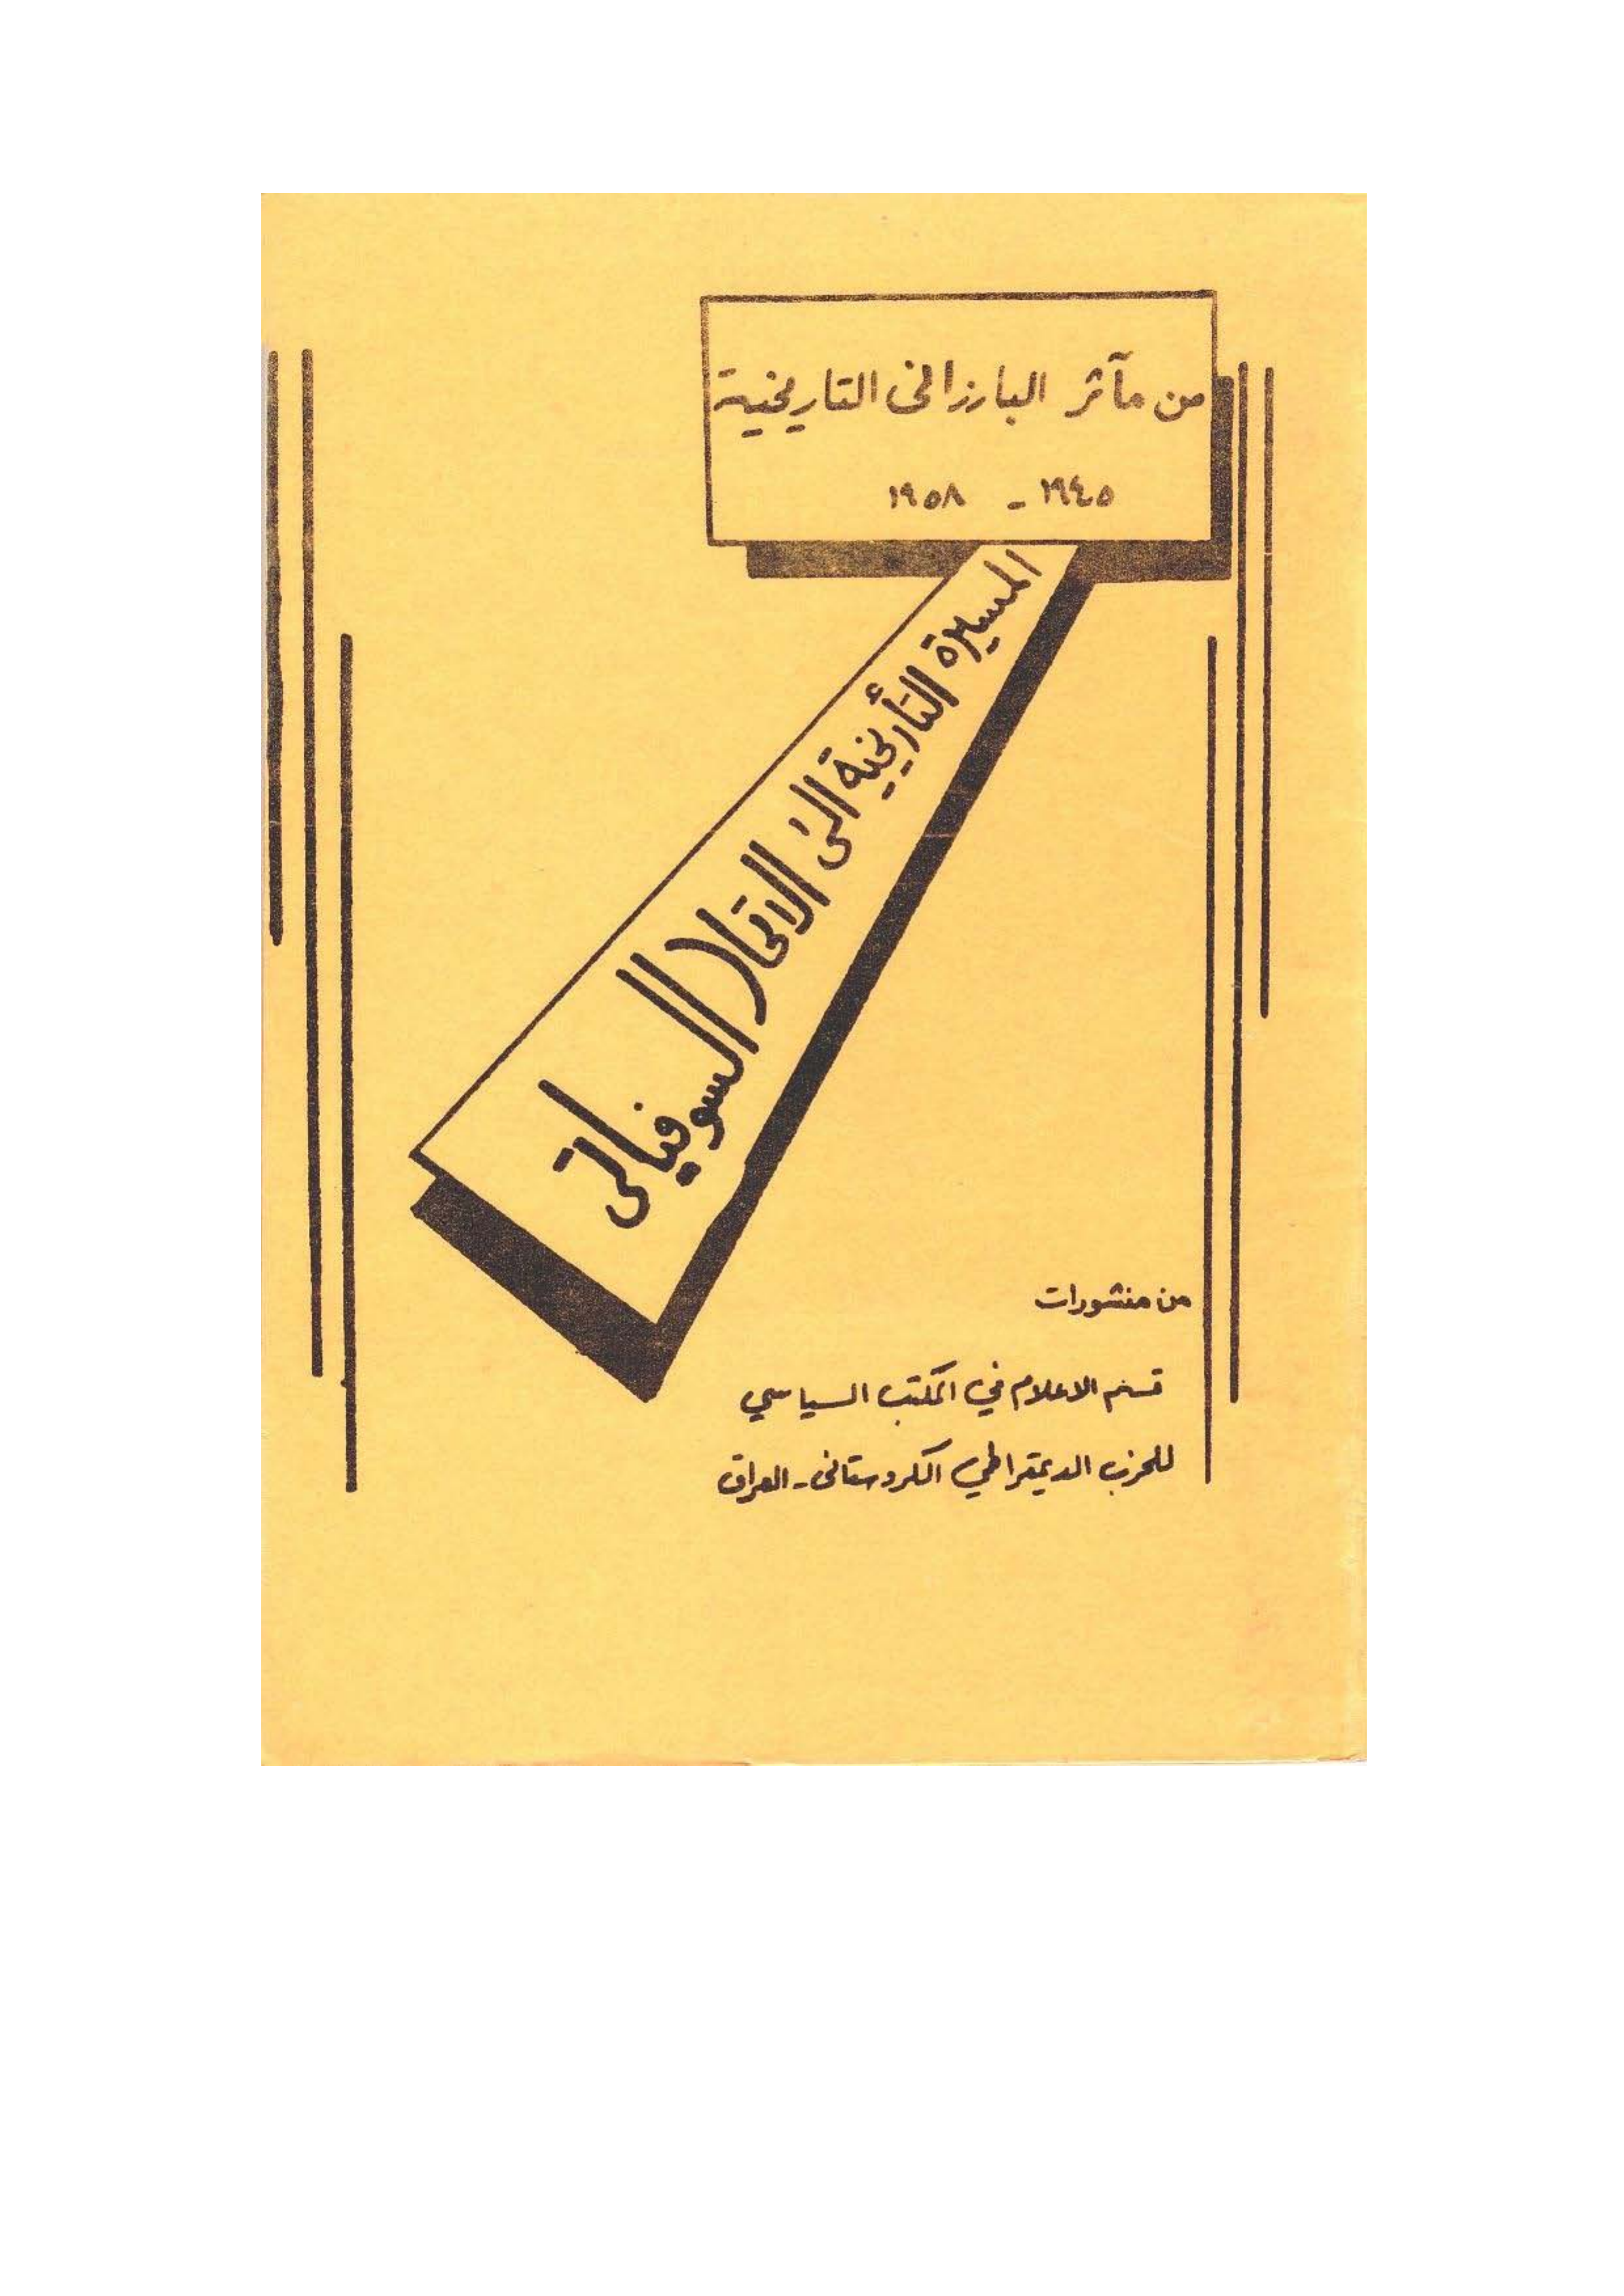 من مآثر البارزانى التاريخية
١٩٤٥ - ١٩٥٨
المسيرة التأريخية الى الاتحاد السوفياتى
من منشورات
قسم الاعلام في المكتب السياسي
للحزب الديمقراطي الكردستانى - العراق